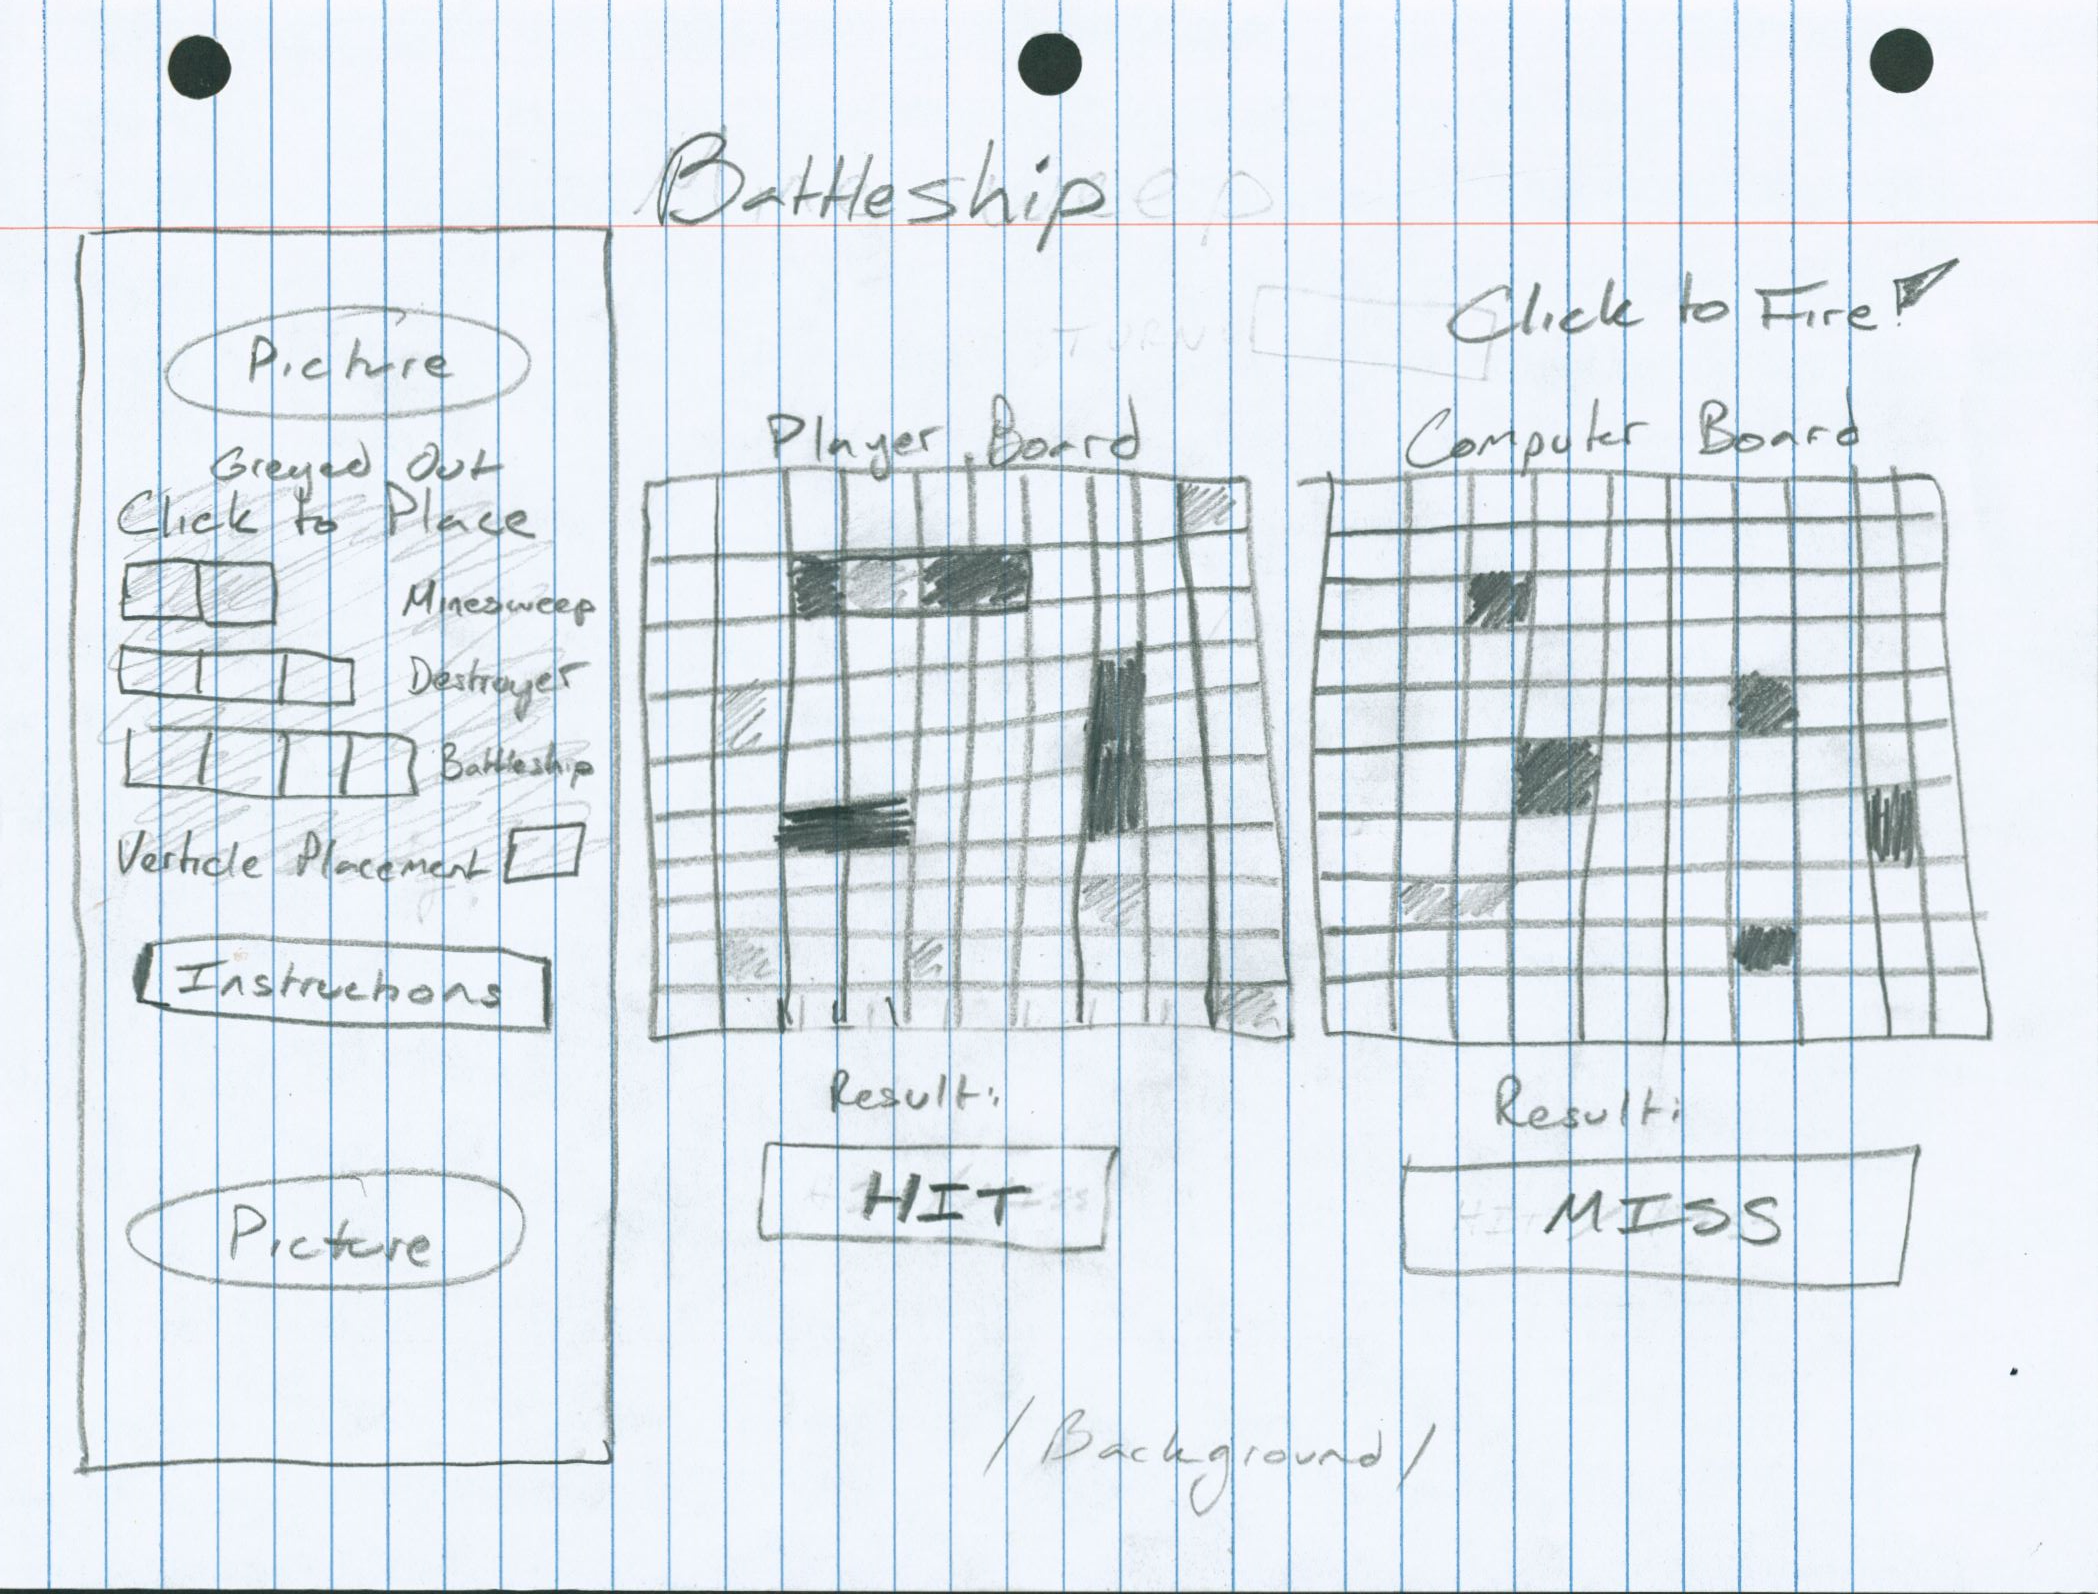 Battleship
Click to Fire!
Picture
Greyed Out
Click to Place
Minesweep
Destroyer
Battleship
Verticle Placement
Instructions
Picture
Player Board
Computer Board
Result:
HIT
Result:
MISS
/Background/
TURN